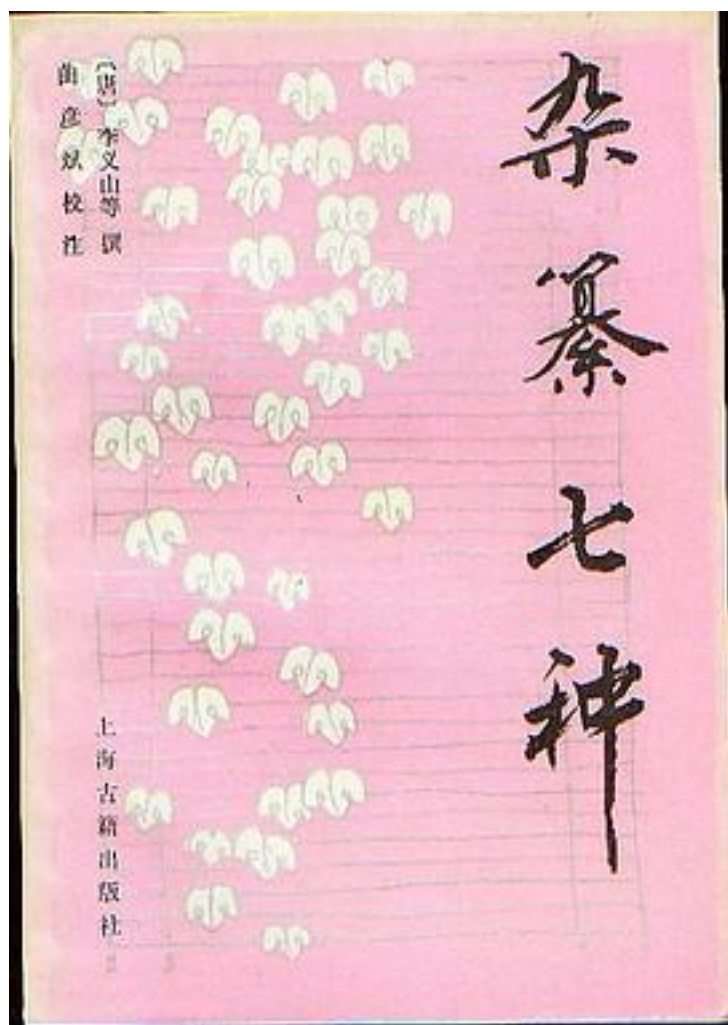 杂纂七种
〔唐〕李义山等 撰
曲彦斌校注
上海古籍出版社